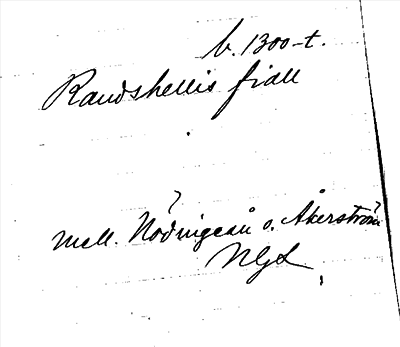 b. 1300-t.
Randshellis fiall
mell. Nödingeån o. Åkerström
NGL